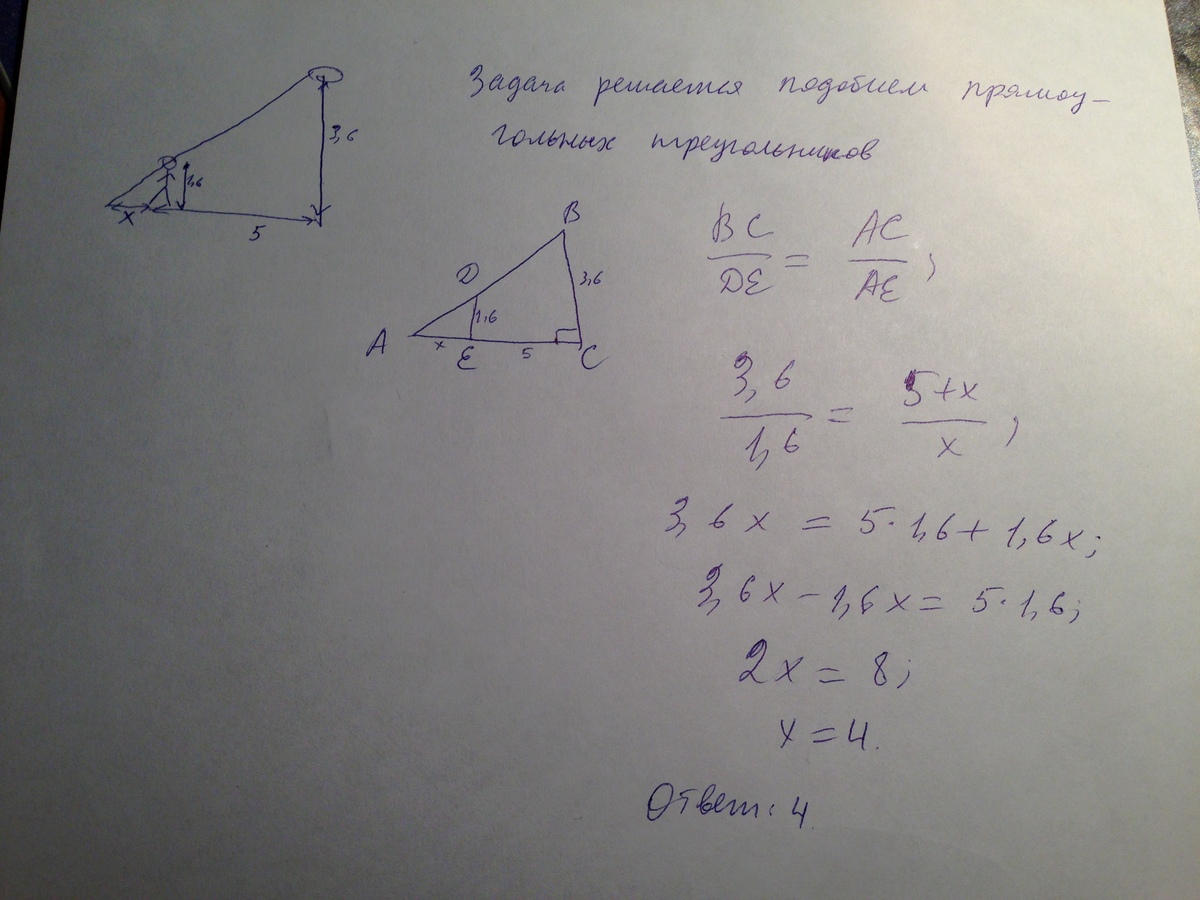 3,6
1,6
x
5
Задача решается подобием прямоу-
гольных треугольников
B
D
3,6
1,6
A
x
E
5
C
BC/DE = AC/AE;
3,6/1,6 = 5+x/x;
3,6x = 5·1,6+1,6x;
3,6x-1,6x= 5·1,6;
2x = 8;
x=4.
Ответ: 4.